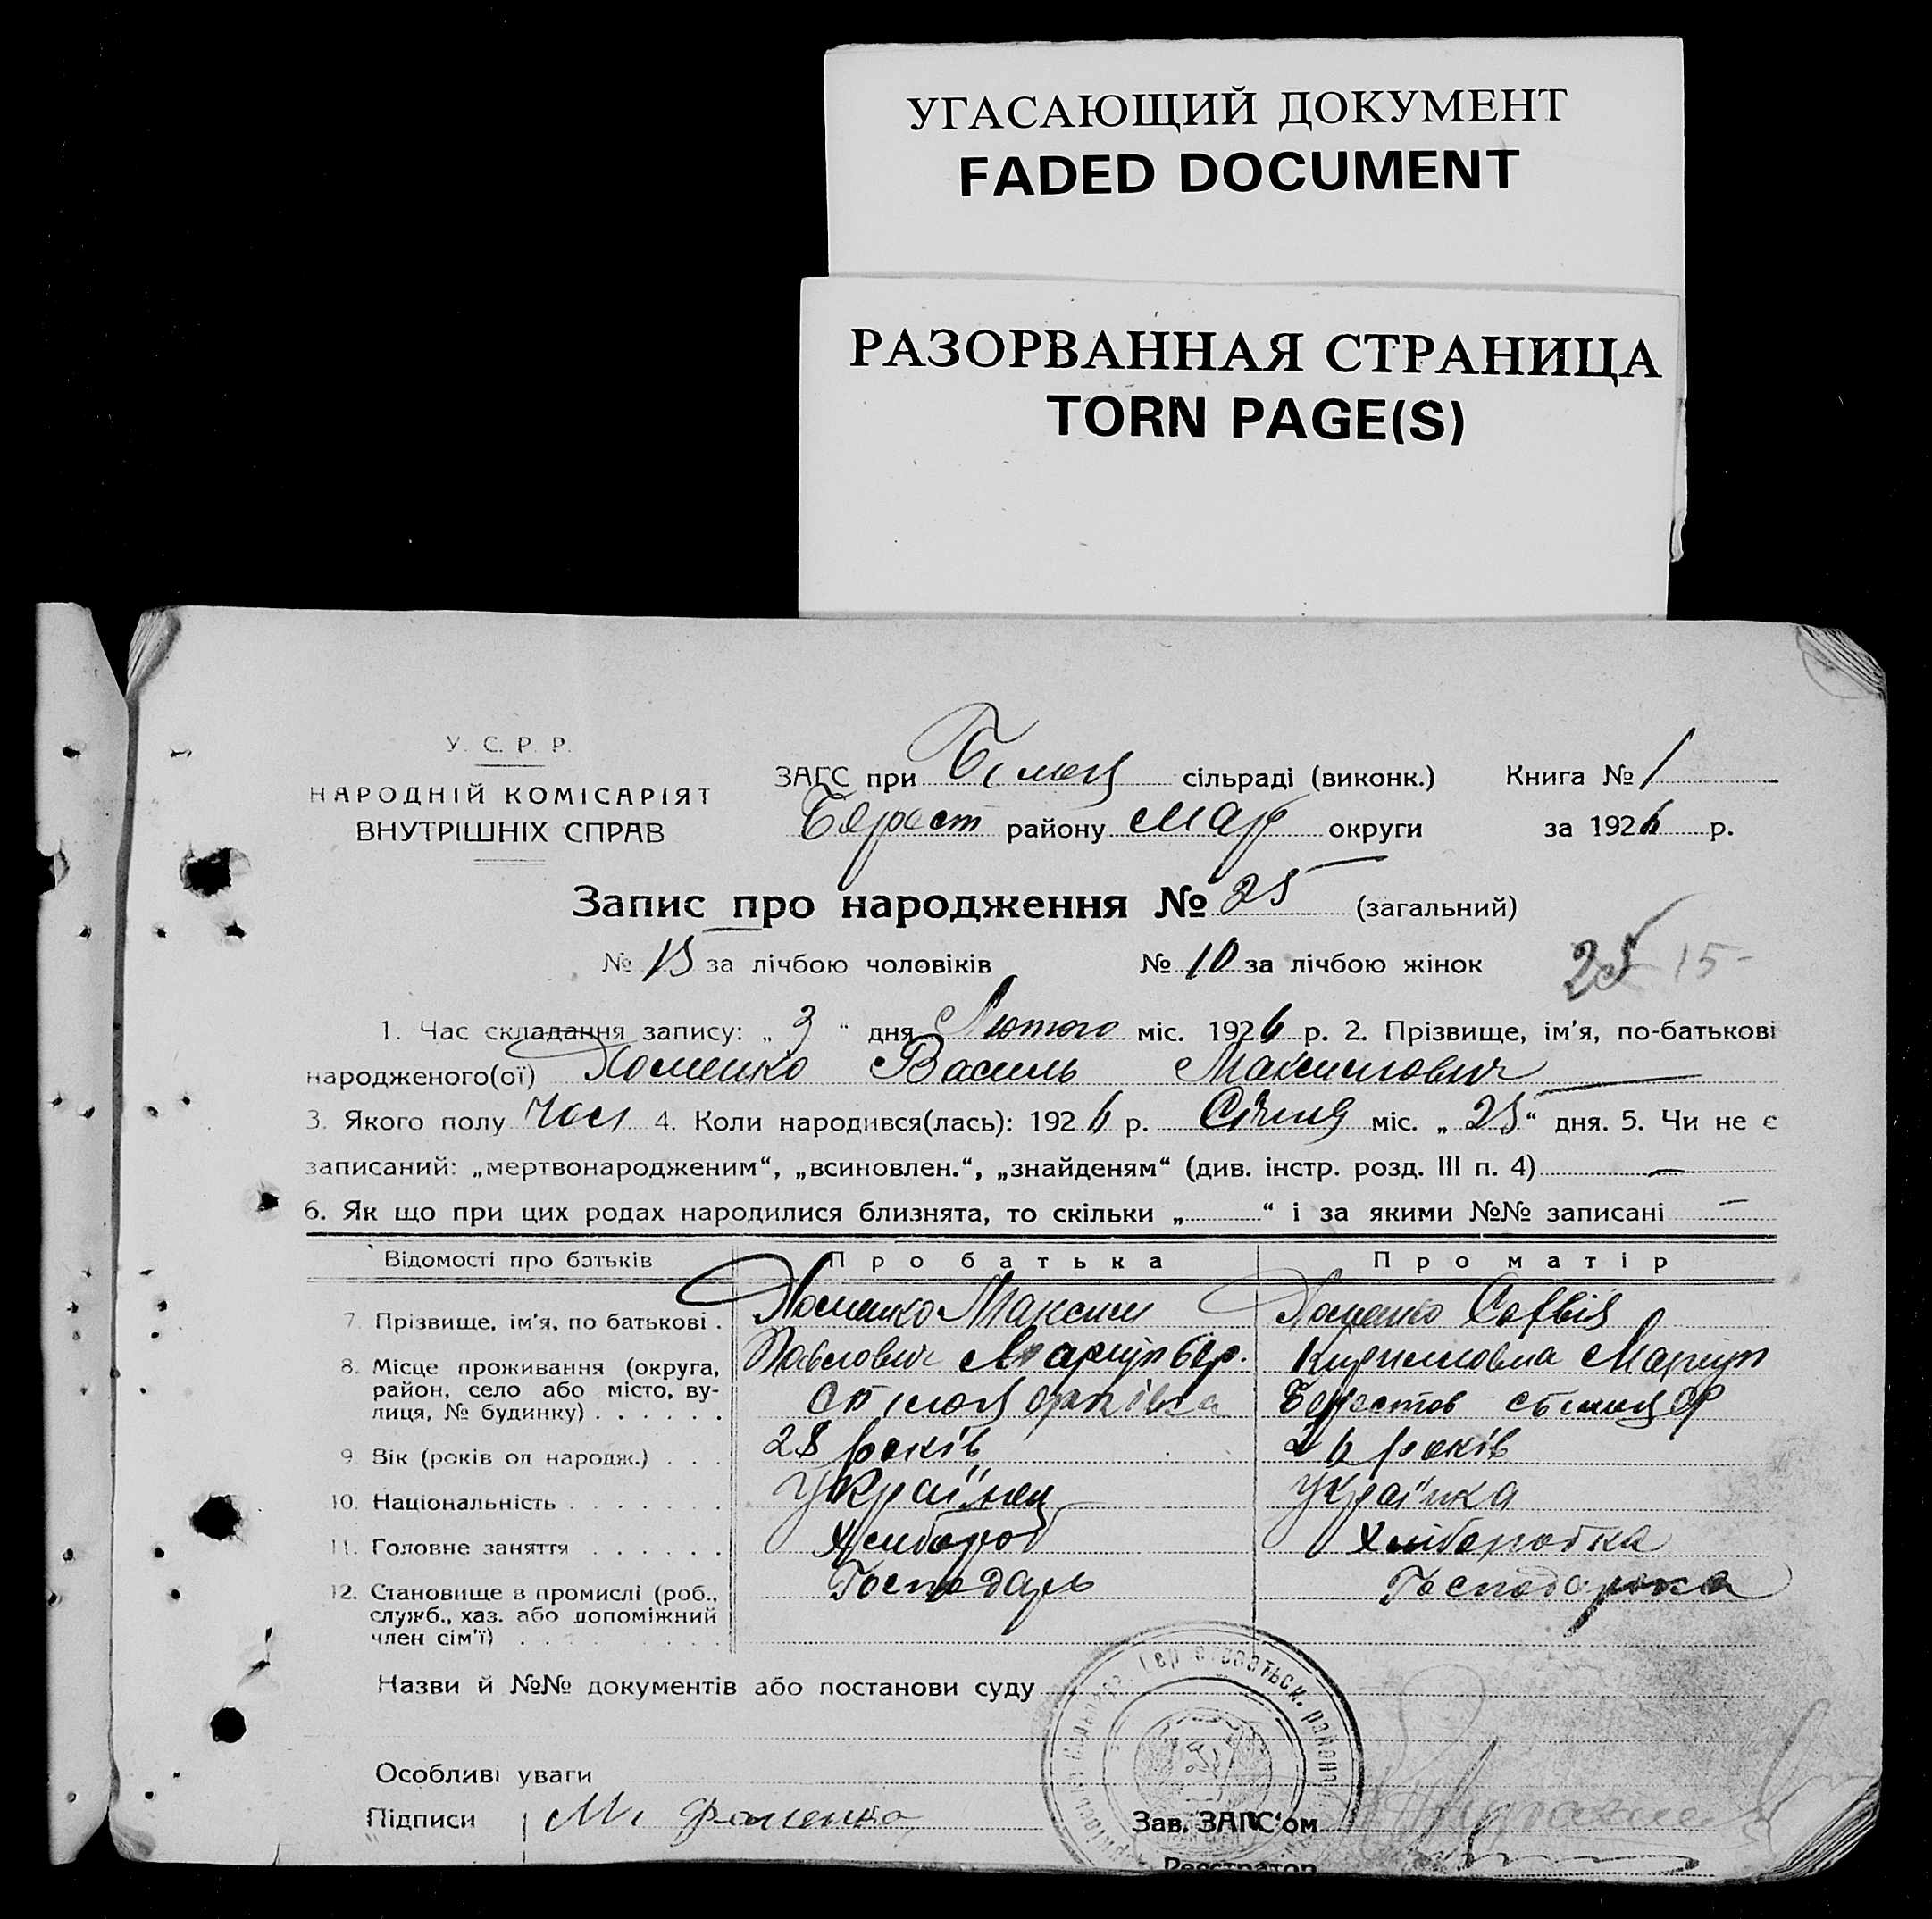 УГАСАЮЩИЙ ДОКУМЕНТ
FADED DOCUMENT
РАЗОРВАННАЯ СТРАНИЦА
TORN PAGE(S)
У. С. Р. Р.
НАРОДНІЙ КОМІСАРІЯТ
ВНУТРІШНІХ СПРАВ
ЗАГС при сільраді (виконк.) Книга № 1
району Мар округи за 1926 р.
Запис про народження № 25 (загальний)
№ 15 за лічбою чоловіків № 10 за лічбою жінок 25 15-
1. Час складання запису: „ 3 “ дня Лютого міс. 1926 р. 2. Прізвище, ім’я, по-батькові
народженого(ої) Хоменко Василь Максимович
3. Якого полу Чол 4. Коли народився(лась): 1926 р. Січня міс. „ 25 “ дня. 5. Чи не є
записаний: „мертвонародженим“, „всиновлен.“, „знайденям“ (див. інстр. розд. III п. 4) —
6. Як що при цих родах народилися близнята, то скільки „ “ і за якими №№ записані —
Відомості про батьків Про батька Про матір
7. Прізвище, ім’я, по батькові . Хоменко Максим Хоменко Софвія
8. Місце проживання (округа, Павлович Маріуп бер. Кириловна Маріуп
район, село або місто, ву-
лиця, № будинку) . . . . . .
9. Вік (років од народж.) . . . 28 років 26 років
10. Національність . . . . . . Українец Українка
11. Головне заняття . . . . . Хлібороб Хліборобка
12. Становище в промислі (роб., Господарь Господарка
служб., хаз. або допоміжний
член сім’ї) . . . . . . . .
Назви й №№ документів або постанови суду
району
Особливі уваги
Підписи М. Фоменко Зав. ЗАГС‘ом
Реєстратор